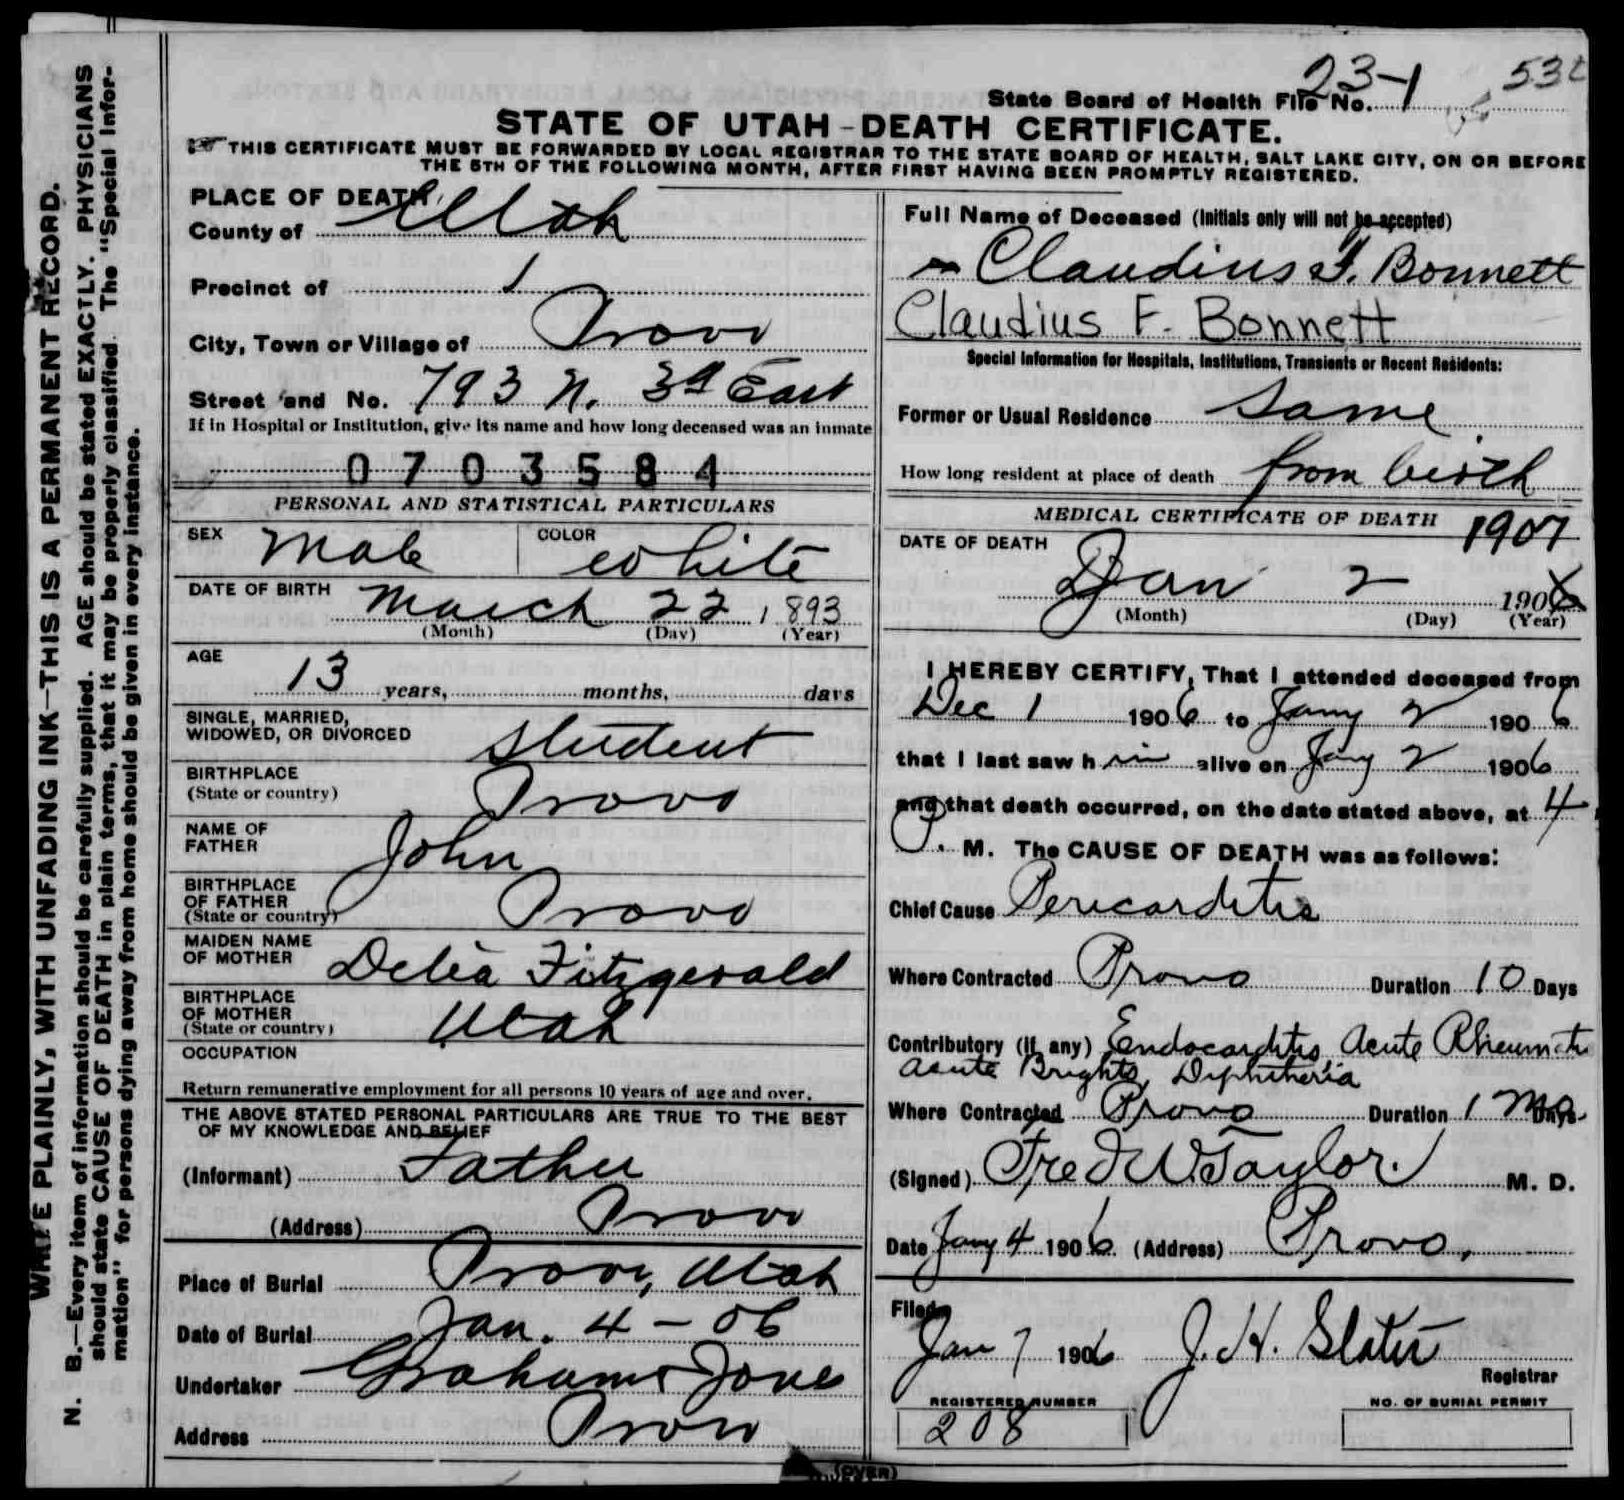 WRITE PLAINLY, WITH UNFADING INK—THIS IS A PERMANENT RECORD.
N. B.—Every item of information should be carefully supplied. AGE should be stated EXACTLY. PHYSICIANS
should state CAUSE OF DEATH in plain terms, that it may be properly classified. The "Special Infor-
mation" for persons dying away from home should be given in every instance.
23-1
State Board of Health File No.
STATE OF UTAH-DEATH CERTIFICATE.
THIS CERTIFICATE MUST BE FORWARDED BY LOCAL REGISTRAR TO THE STATE BOARD OF HEALTH, SALT LAKE CITY, ON OR BEFORE
THE 5TH OF THE FOLLOWING MONTH, AFTER FIRST HAVING BEEN PROMPTLY REGISTERED.
PLACE OF DEATH
County of Utah
Precinct of 1
City, Town or Village of Provo
Street and No. 793 N. 3d East
If in Hospital or Institution, give its name and how long deceased was an inmate
0703584
PERSONAL AND STATISTICAL PARTICULARS
SEX Male COLOR White
DATE OF BIRTH March 22, 1893
(Month) (Day) (Year)
AGE
13 years, months, days
SINGLE, MARRIED,
WIDOWED, OR DIVORCED Student
BIRTHPLACE
(State or country) Provo
NAME OF
FATHER John
BIRTHPLACE
OF FATHER
(State or country) Provo
MAIDEN NAME
OF MOTHER Delia Fitzgerald
BIRTHPLACE
OF MOTHER
(State or country) Utah
OCCUPATION
Return remunerative employment for all persons 10 years of age and over.
THE ABOVE STATED PERSONAL PARTICULARS ARE TRUE TO THE BEST
OF MY KNOWLEDGE AND BELIEF
(Informant) Father
(Address) Provo
Place of Burial Provo, Utah
Date of Burial Jan. 4 - 06
Undertaker Graham Jones
Address Provo
Full Name of Deceased (Initials only will not be accepted)
Claudius F. Bonnett
Claudius F. Bonnett
Special Information for Hospitals, Institutions, Transients or Recent Residents:
Former or Usual Residence Same
How long resident at place of death from birth
MEDICAL CERTIFICATE OF DEATH
1907
DATE OF DEATH
Jan 2 1906
(Month) (Day) (Year)
I HEREBY CERTIFY, That I attended deceased from
Dec 1 1906 to Jany 2 1906
that I last saw h im alive on Jany 2 1906
and that death occurred, on the date stated above, at 4
P. M. The CAUSE OF DEATH was as follows:
Chief Cause Pericarditis
Where Contracted Provo Duration 10 Days
Contributory (if any) Endocarditis Acute Rheumatic
Acute Brights, Diphtheria
Where Contracted Provo Duration 1 Mo. Days
(Signed) Fred W Taylor. M. D.
Date Jany 4 1906 (Address) Provo.
Filed
Jan 7 1906 J. H. Slater
Registrar
REGISTERED NUMBER
208
NO. OF BURIAL PERMIT
(OVER)